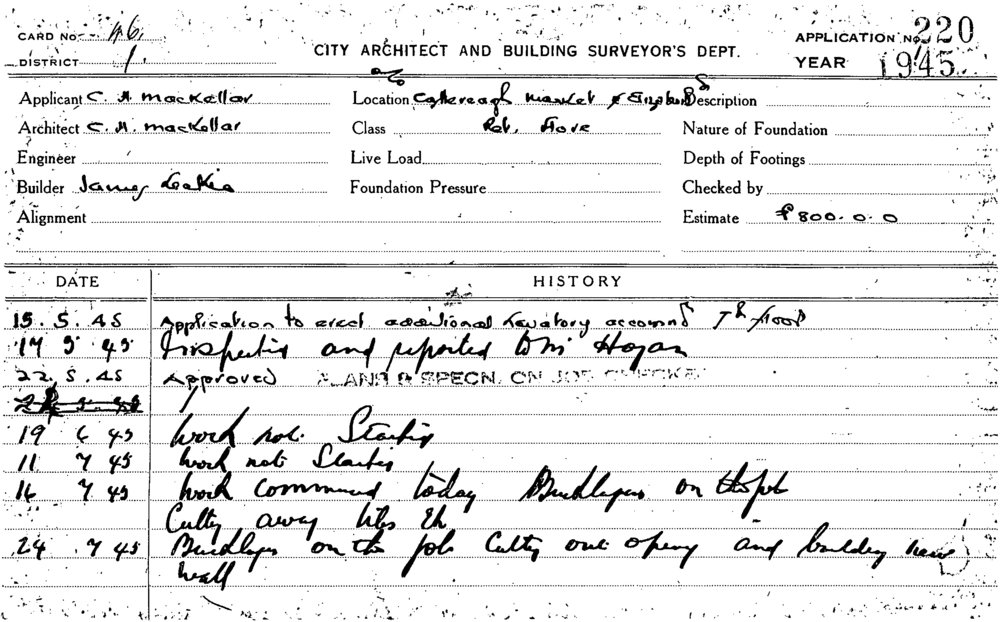 CARD No. 46.
DISTRICT 1.
CITY ARCHITECT AND BUILDING SURVEYOR'S DEPT.
APPLICATION No. 220
YEAR 1945.
Applicant C. H. MacKellar
Location c/o Castlereagh Market & Elizabeth S
Description
Architect C. H. MacKellar
Class Ret. Store
Nature of Foundation
Engineer
Live Load
Depth of Footings
Builder James
Foundation Pressure
Checked by
Alignment
Estimate £800.0.0
DATE HISTORY
15.5.45 Application to erect additional lavatory accomm 7th floor
17 5 45 Inspected and reported to Mr Hogan
22.5.45 Approved PLAN & SPECN. ON JOB CHECKED
19 6 45 Work not Started
11 7 45 Work not Started
16 7 45 Work commenced today Bricklayers on the job
Cutting away tiles Etc
24 .7 45 Bricklayers on the job Cutting out opening and building new
wall